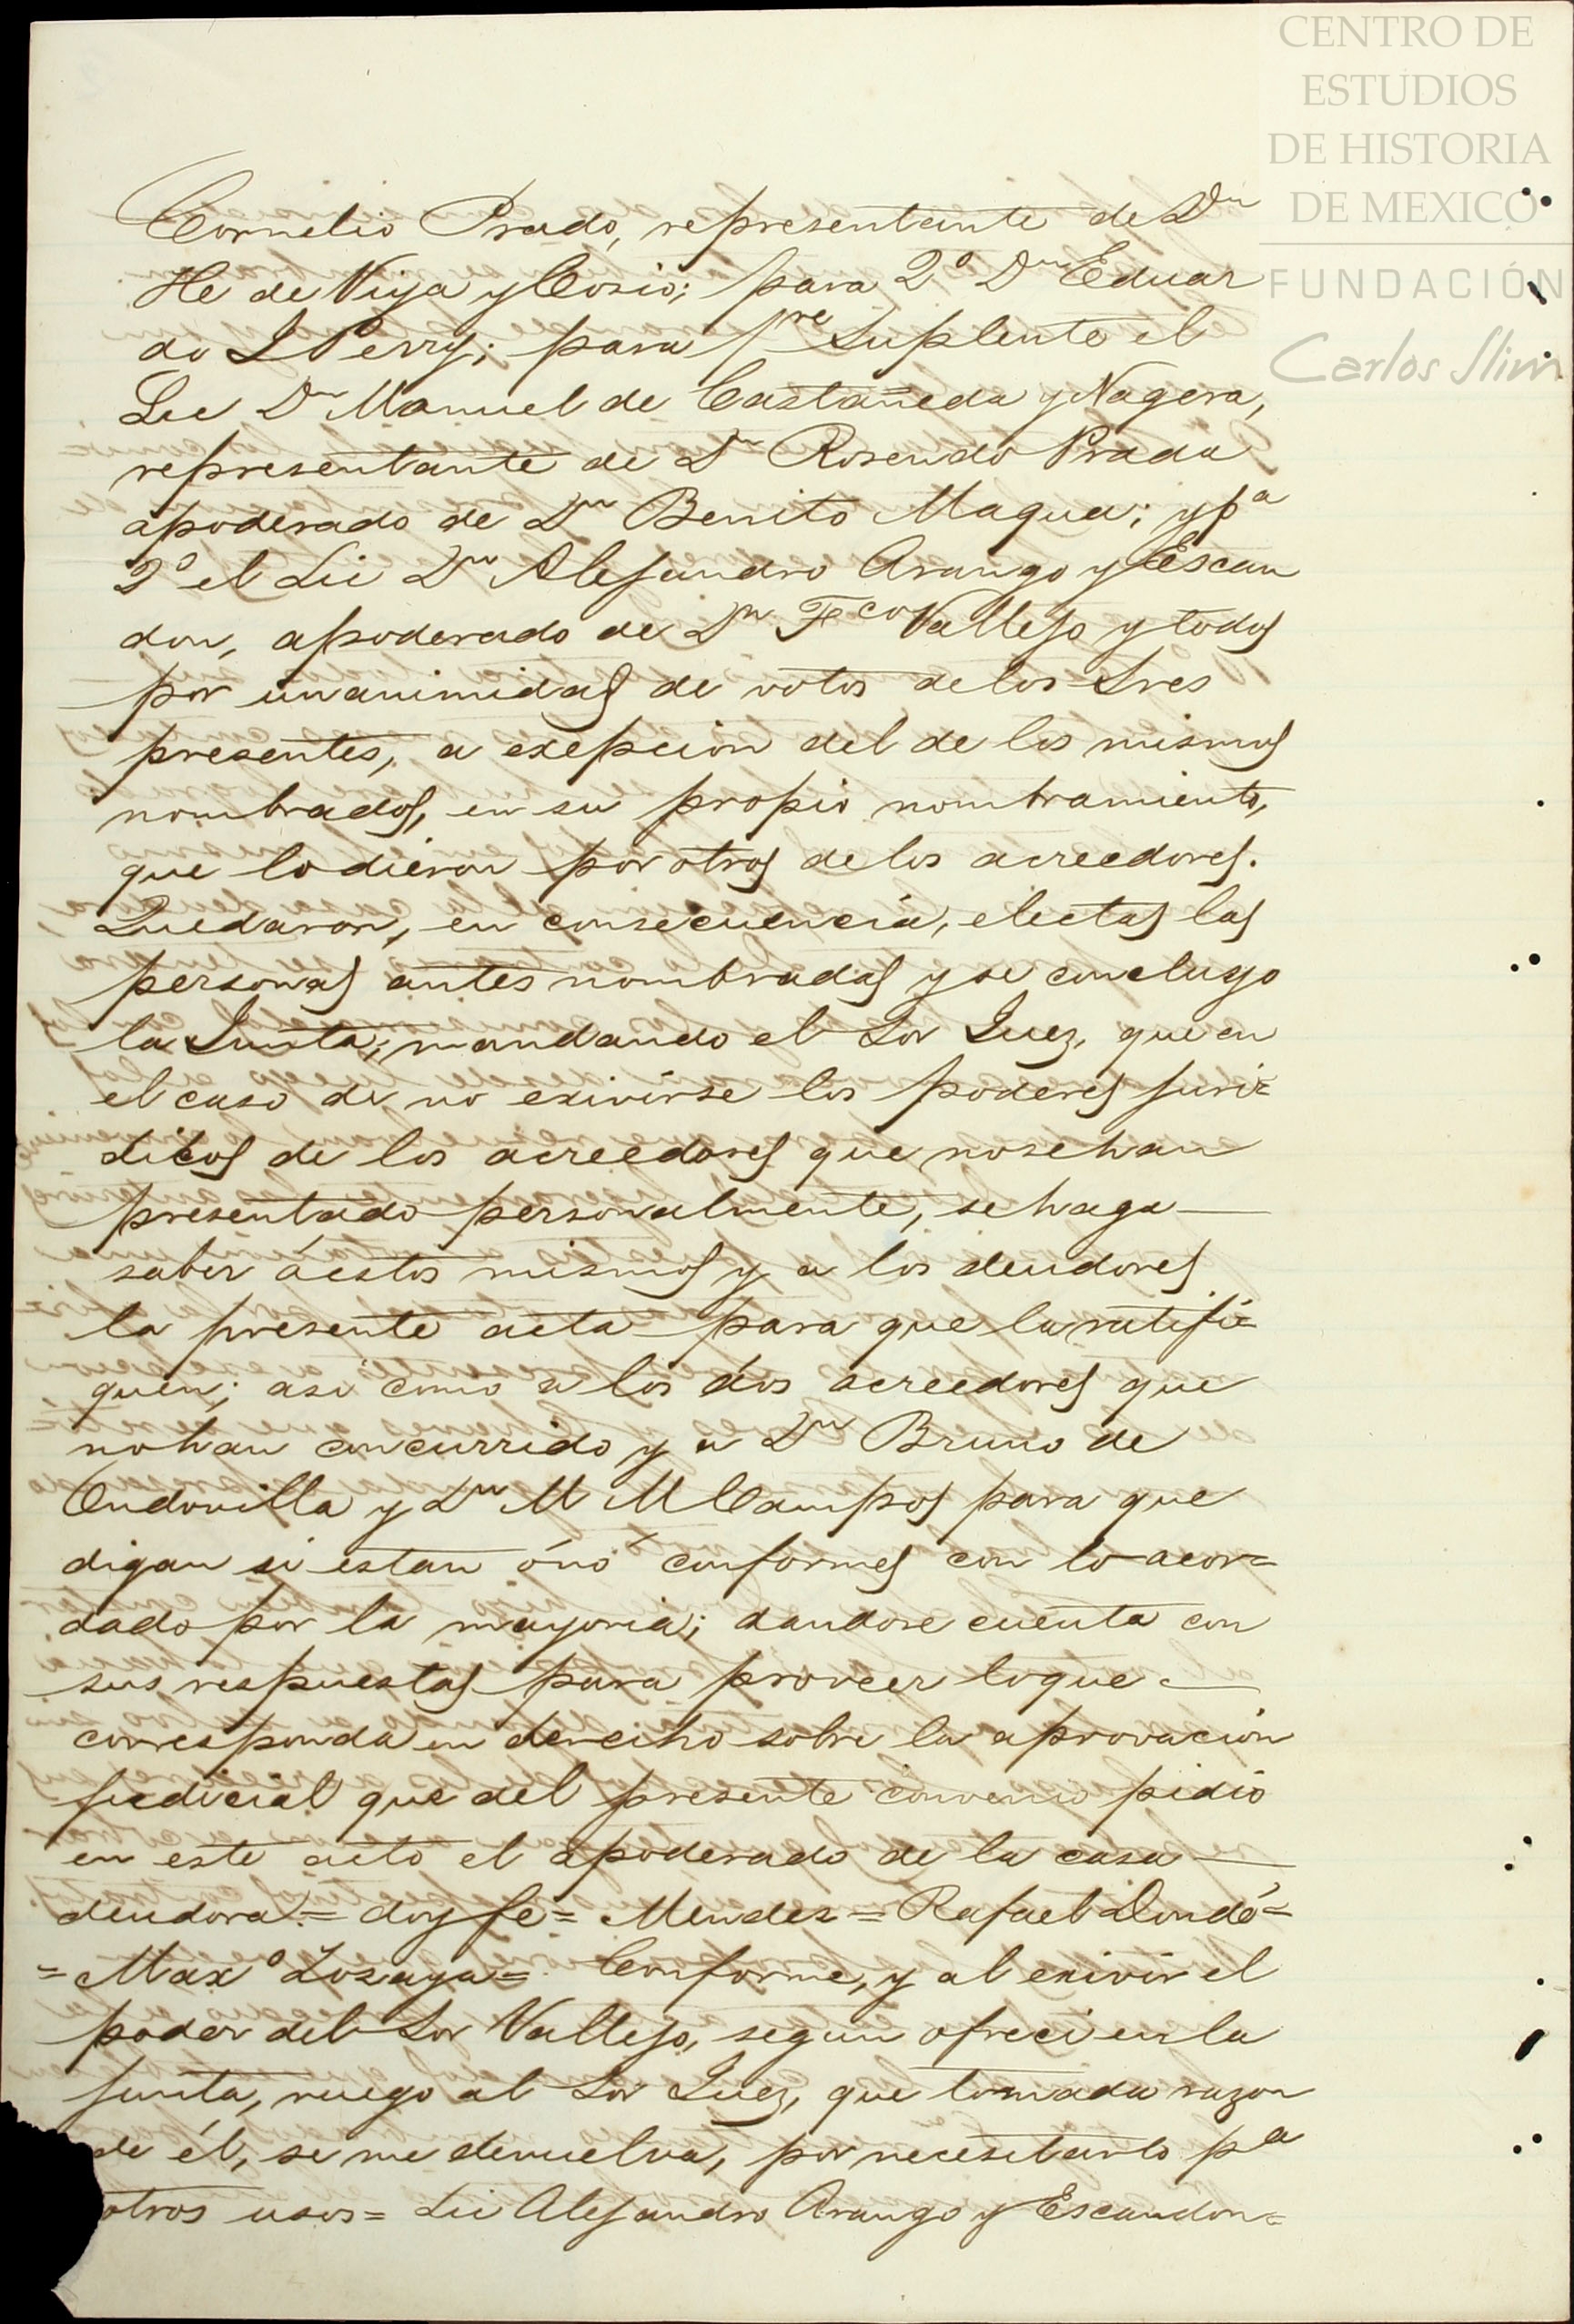 CENTRO DE
ESTUDIOS
DE HISTORIA
DE MEXICO
FUNDACIÓN
Carlos Slim
Cornelio Prado, representante de Dn
He de Viya y Cosio; para 2º Dn Eduar
do L Perry; para 1re Suplente el
Lic Dn Manuel de Castañeda y Nagera,
representante de Dn Rosendo Prada
apoderado de Dn Benito Maqua; y pa
2º el Lic Dn Alejandro Arango y Escan
don, apoderado de Dn Fco Vallejo y todos
por unanimidad de votos de los Sres
presentes, a exepcion del de los mismos
nombrados, en su propio nombramiento,
que lo dieron por otros de los acreedores.
Quedaron, en consecuencia, electas las
personas antes nombradas y se concluyo
la Junta; mandando el Sor Juez, que en
el caso de no exivirse los poderes juri=
dicos de los acreedores que no se han
presentado personalmente, se haga
saber á estos mismos y a los deudores
la presente acta para que la ratifi=
quen; asi como a los dos acreedores que
no han concurrido y a Dn Bruno de
Ondovilla y Dn M M Campos para que
digan si estan ó nó conformes con lo acor=
dado por la mayoria; dandose cuenta con
sus respuestas para proveer lo que
corresponda en derecho sobre la aprovacion
judicial que del presente convenio pidió
en este acto el apoderado de la casa
deudora = doy fé = Mendez = Rafael Dondé =
= Maxº Lozaya = Conforme, y al exivir el
poder del Sor Vallejo, segun ofreci en la
junta, ruego al Sor Juez, que tomada razon
de él, se me devuelva, por necesitarlo pa
otros usos = Lic Alejandro Arango y Escandon =